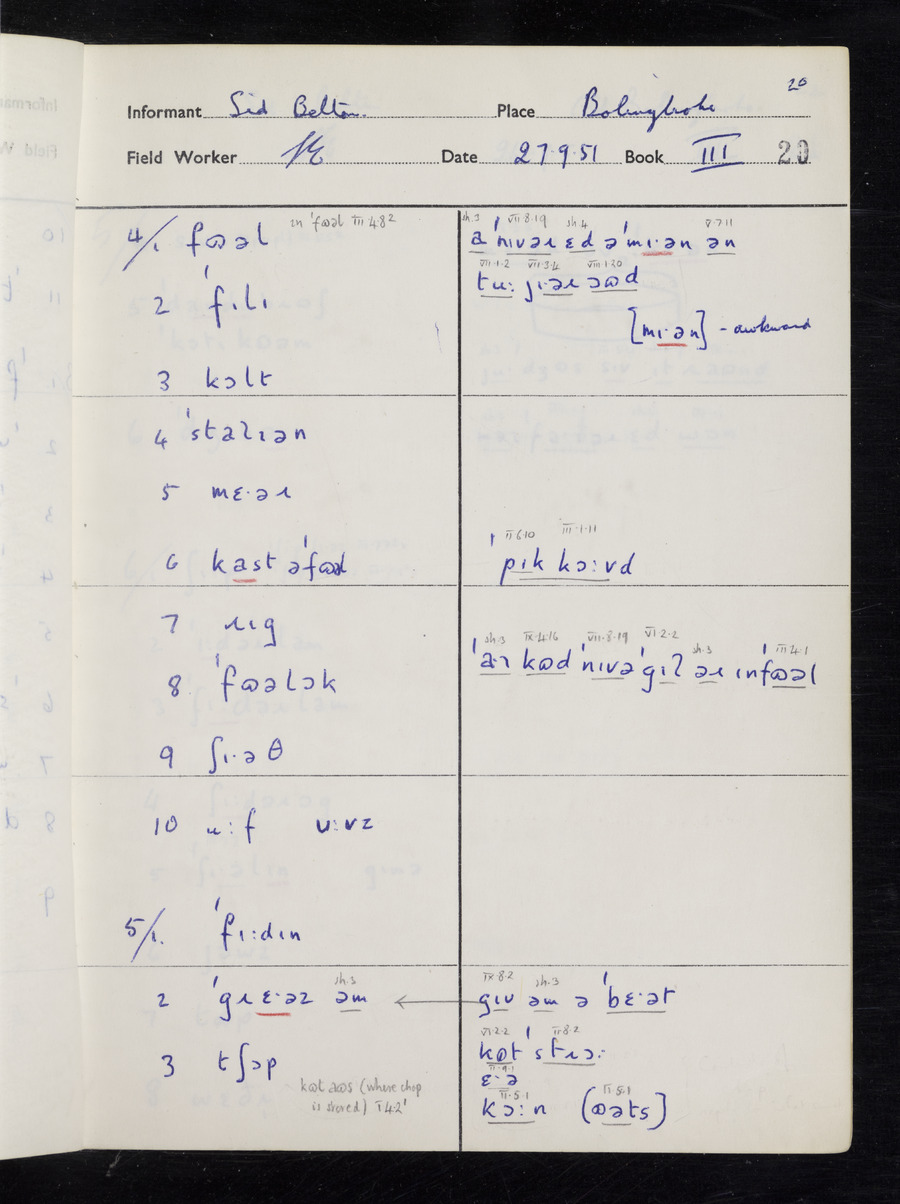 20
Informant Sid Belton. Place Bolingbroke
Field Worker Date 27·9·51 Book III 20
4/1 fʊəl ɪn ˈfʊəl III 4.82
2 ˈfɪlɪ
3 kɔlt
4 ˈstalɪən
5 mɛ·əɹ
6 kast əˈfʊəl
7 ɹɪg
8 ˈfʊəlɔk
9 ʃɪ·əθ
10 u:f u:vz
5/1. ˈfɪ:dɪn
2 ˈgɹɛ·əz əm sh.3
3 tʃɔp
kʊt aʊs (where chop
is stored) I 4.2'
sh.3 VII·8·19 sh.4 V·7·11
a ˈnɪvəɹ ɛd əˈmɪ·ən ən
VII·1·2 VII·3·4 VIII·1·20
tu: jɪ·əɹ ɔʊd
[mɪ·ən] - awkward
II 6·10 III·1·11
ˈpɪk kɔ:vd
sh.3 IX·4·16 VII·8·19 VI·2·2 sh.3 III·4·1
ˈaɪ kʊd ˈnɪvə ˈgɪl əɹ ɪnˈfʊəl
IX·8·2 sh.3
gɪv əm ə ˈbɛ·ət
VI·2·2 II·8·2
kʊt ˈstɹɔ:
II·9·1
ɛ·ə
II·5·1 II·5·1
kɔ:n (ʊəts)